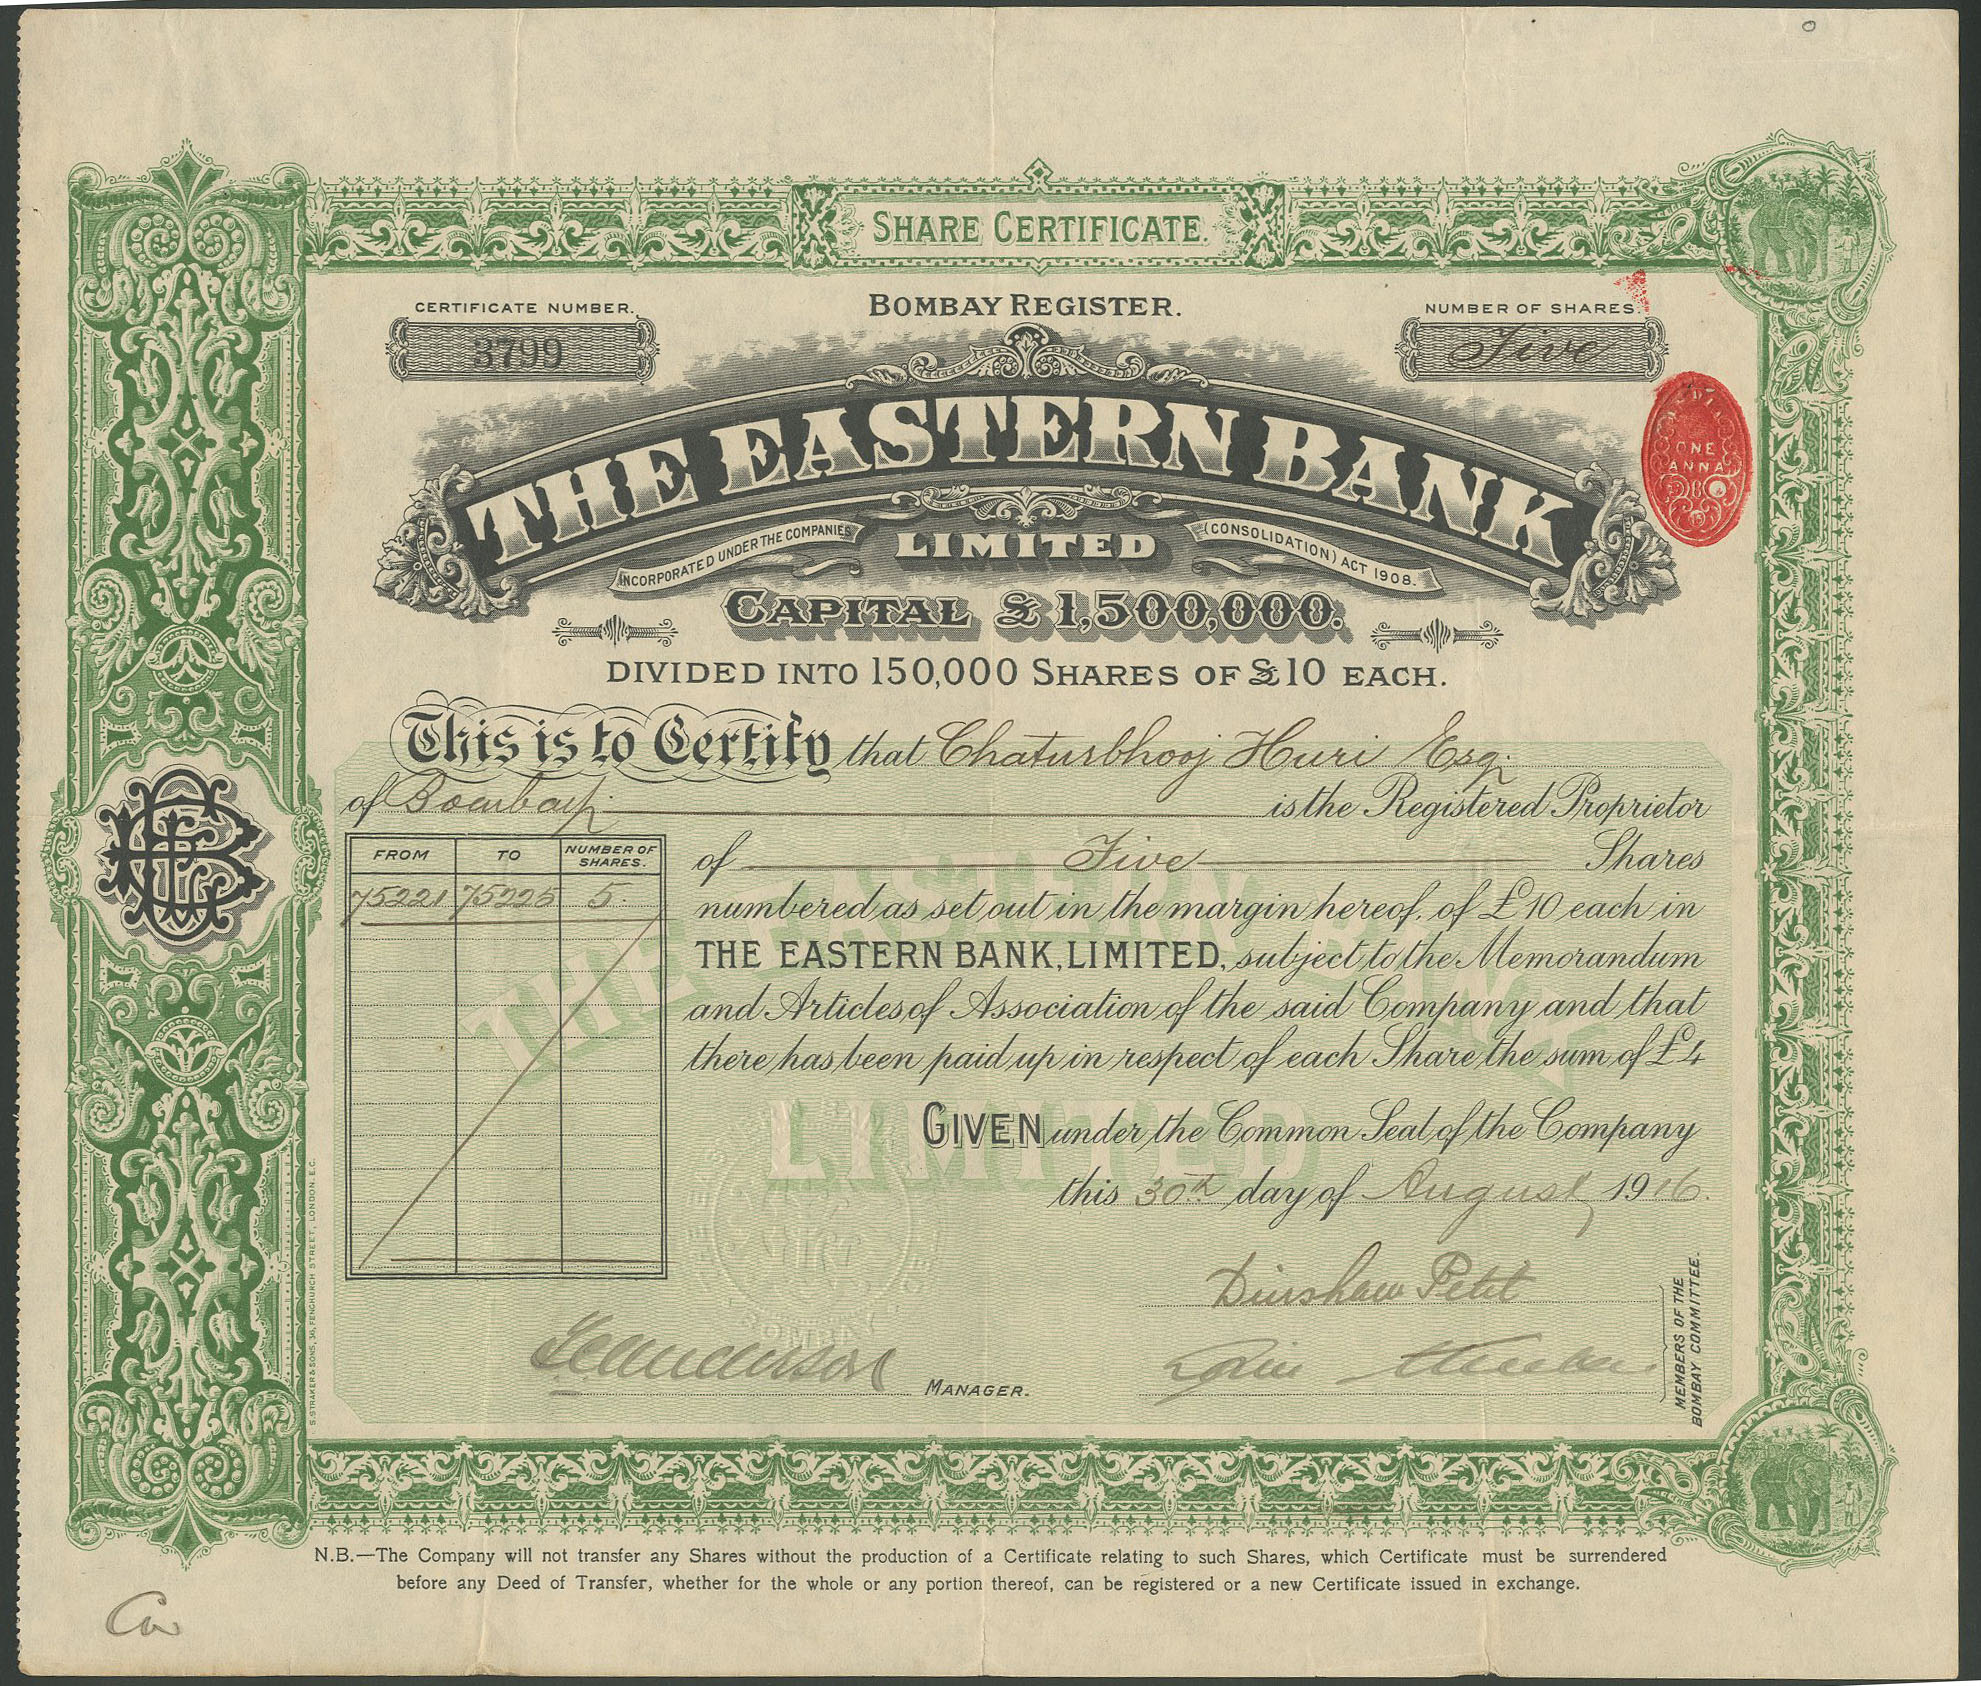 SHARE CERTIFICATE.
CERTIFICATE NUMBER.
3799
BOMBAY REGISTER.
NUMBER OF SHARES.
Five
THE EASTERN BANK
LIMITED
INCORPORATED UNDER THE COMPANIES (CONSOLIDATION) ACT 1908.
ONE
ANNA
CAPITAL £1,500,000.
DIVIDED INTO 150,000 SHARES OF £10 EACH.
This is to Certify that Chatursbhooj Huri Esq.
of Bombay is the Registered Proprietor
of Five Shares
numbered as set out in the margin hereof, of £10 each in
THE EASTERN BANK, LIMITED, subject to the Memorandum
and Articles of Association of the said Company and that
there has been paid up in respect of each Share the sum of £4
FROM TO NUMBER OF SHARES.
75221 75225 5.
THE EASTERN BANK
LIMITED
GIVEN under the Common Seal of the Company
this 30th day of August 1916.
Dinshaw Petit
BOMBAY
MANAGER.
MEMBERS OF THE
BOMBAY COMMITTEE.
S. STRAKER & SONS, 36, FENCHURCH STREET, LONDON. E.C.
N.B.—The Company will not transfer any Shares without the production of a Certificate relating to such Shares, which Certificate must be surrendered
before any Deed of Transfer, whether for the whole or any portion thereof, can be registered or a new Certificate issued in exchange.